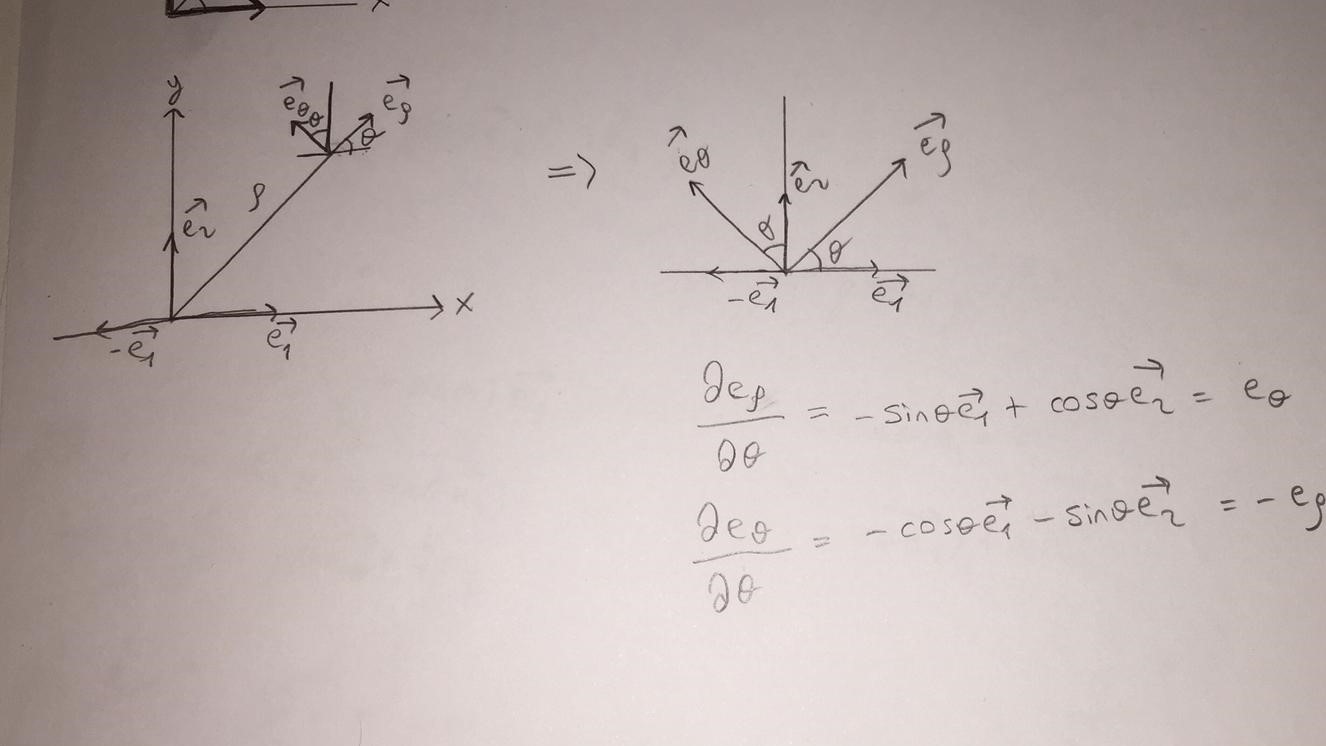 x
y
e⃗θ θ e⃗ρ
θ
ρ
e⃗₂
-e⃗₁ e⃗₁ x
=>
e⃗θ e⃗₂ e⃗ρ
θ θ
-e⃗₁ e⃗₁
∂eρ/∂θ = -sinθe⃗₁ + cosθe⃗₂ = eθ
∂eθ/∂θ = -cosθe⃗₁ - sinθe⃗₂ = -eρ